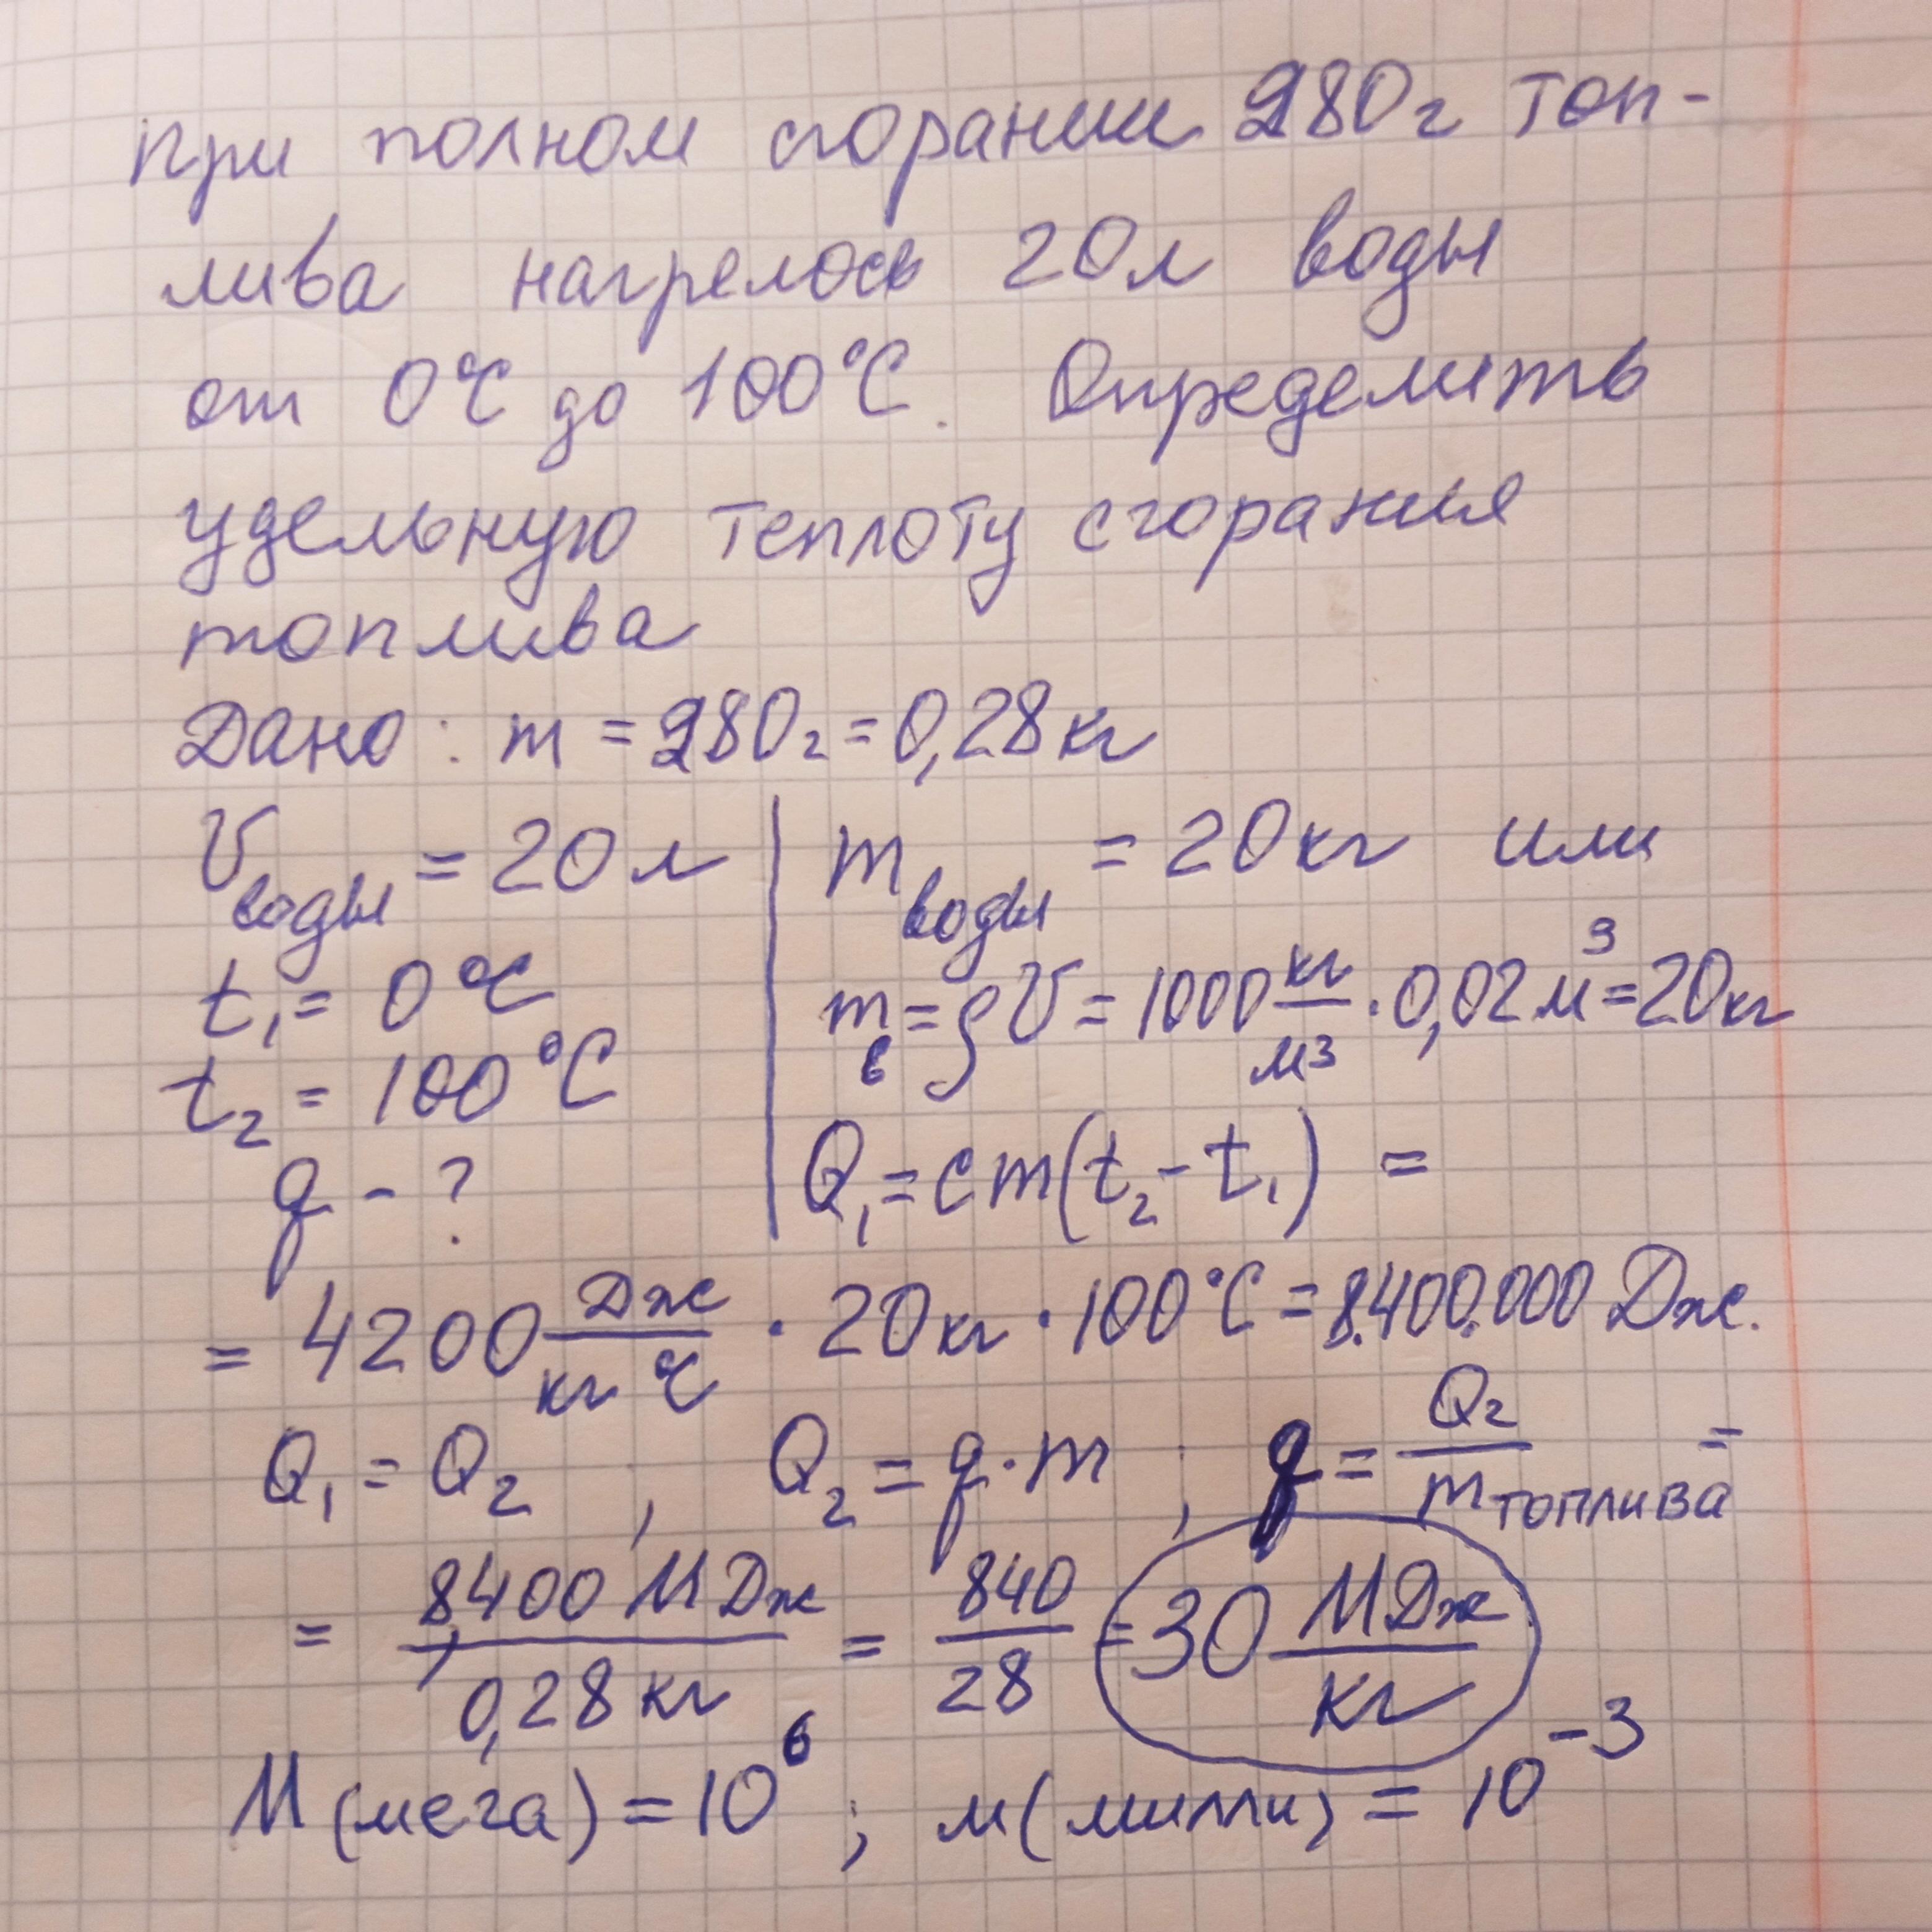 При полном сгорании 280г топ-
лива нагрелось 20л воды
от 0°С до 100°С. Определить
удельную теплоту сгорания
топлива
Дано: m = 280г = 0,28кг
V воды = 20л | m воды = 20кг или
t₁ = 0°С | mв = ρV = 1000 кг/м³ · 0,02м³ = 20кг
t₂ = 100°С
q - ? | Q₁ = cm(t₂ - t₁) =
= 4200 Дж/кг°С · 20кг · 100°С = 8.400.000 Дж.
Q₁ = Q₂ , Q₂ = q · m ; q = Q₂/m топлива =
= 8,400 МДж/0,28 кг = 840/28 = 30 МДж/кг
М(мега) = 10⁶ ; м(милли) = 10⁻³